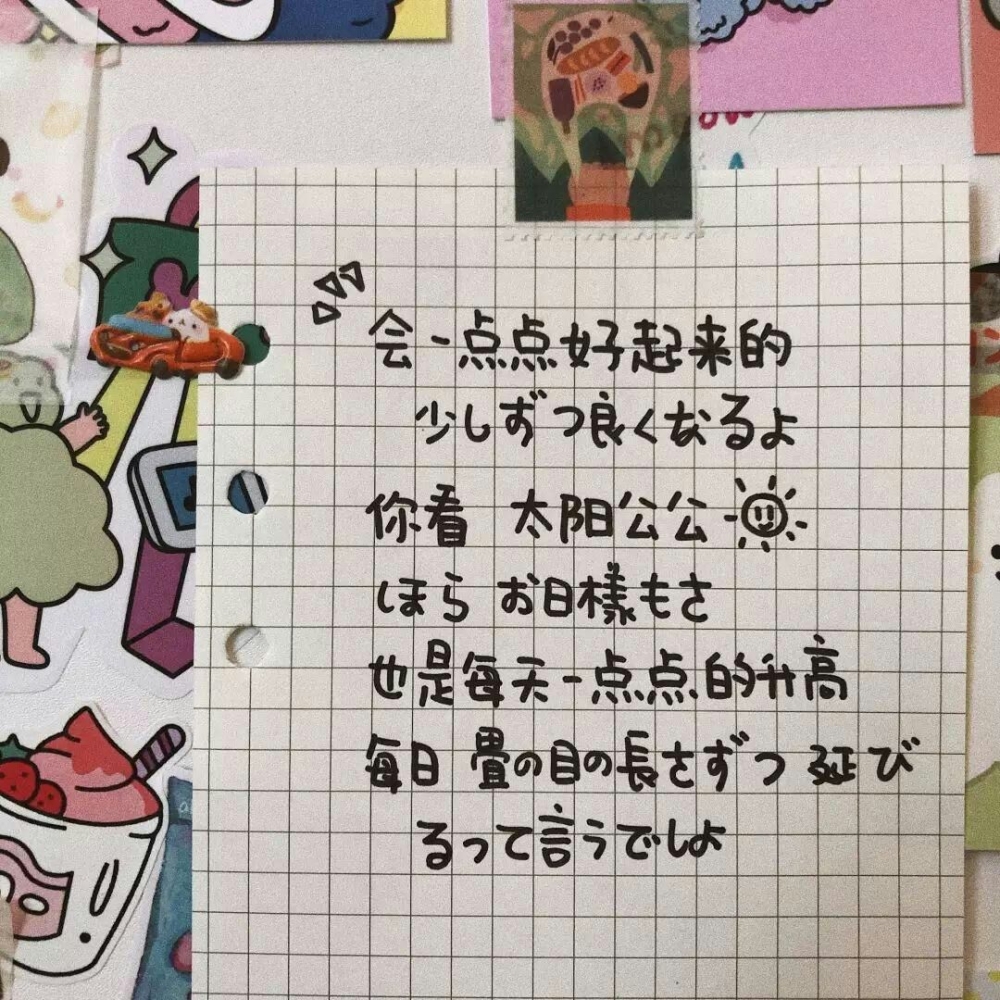 会一点点好起来的
少しずつ良くなるよ
你看 太阳公公
ほら お日様もさ
也是每天一点点的升高
毎日 畳の目の長さずつ 延び
るって言うでしょ